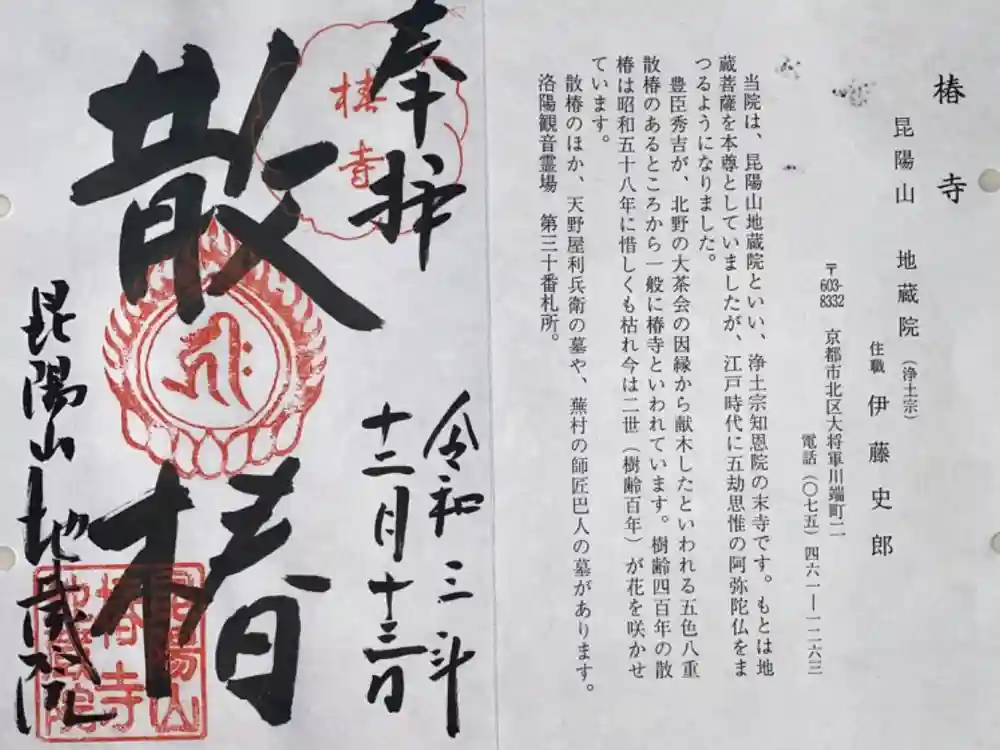 椿寺
昆陽山 地蔵院（浄土宗）
住職 伊藤史郎
〒603-8332 京都市北区大将軍川端町二
電話（〇七五）四六一―一二六三
当院は、昆陽山地蔵院といい、浄土宗知恩院の末寺です。もとは地
蔵菩薩を本尊としていましたが、江戸時代に五劫思惟の阿弥陀仏をま
つるようになりました。
豊臣秀吉が、北野の大茶会の因縁から献木したといわれる五色八重
散椿のあるところから一般に椿寺といわれています。樹齢四百年の散
椿は昭和五十八年に惜しくも枯れ今は二世（樹齢百年）が花を咲かせ
ています。
散椿のほか、天野屋利兵衛の墓や、蕪村の師匠巴人の墓があります。
洛陽観音霊場 第三十番札所。
奉拝
令和三年
十二月十三日
椿寺
散椿
昆陽山地蔵院
昆陽山
椿寺
地蔵院